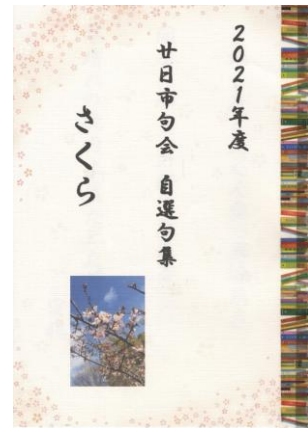 2021年度
廿日市句会 自選句集
さくら